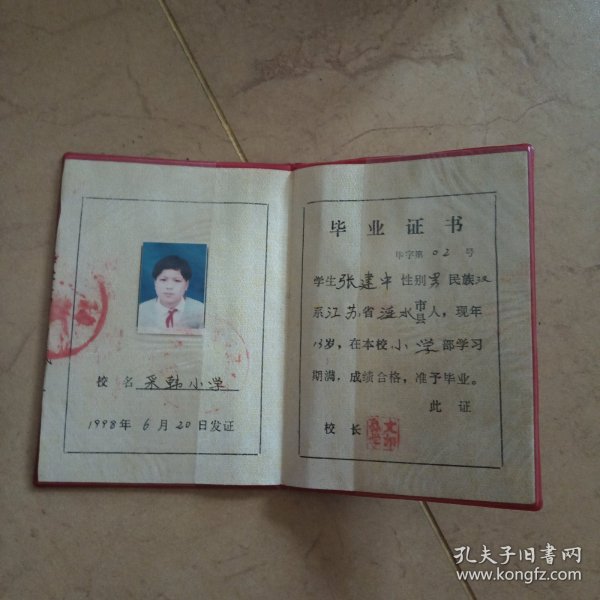 校 名 采韩小学
1998年 6月 20日发证
毕业证书
毕字第 02 号
学生 张建中 性别 男 民族 汉
系 江苏 省 涟水 市县人,现年
13岁,在本校 小学 部学习
期满,成绩合格,准予毕业。
此证
校 长
孔夫子旧书网
www.kongfz.com